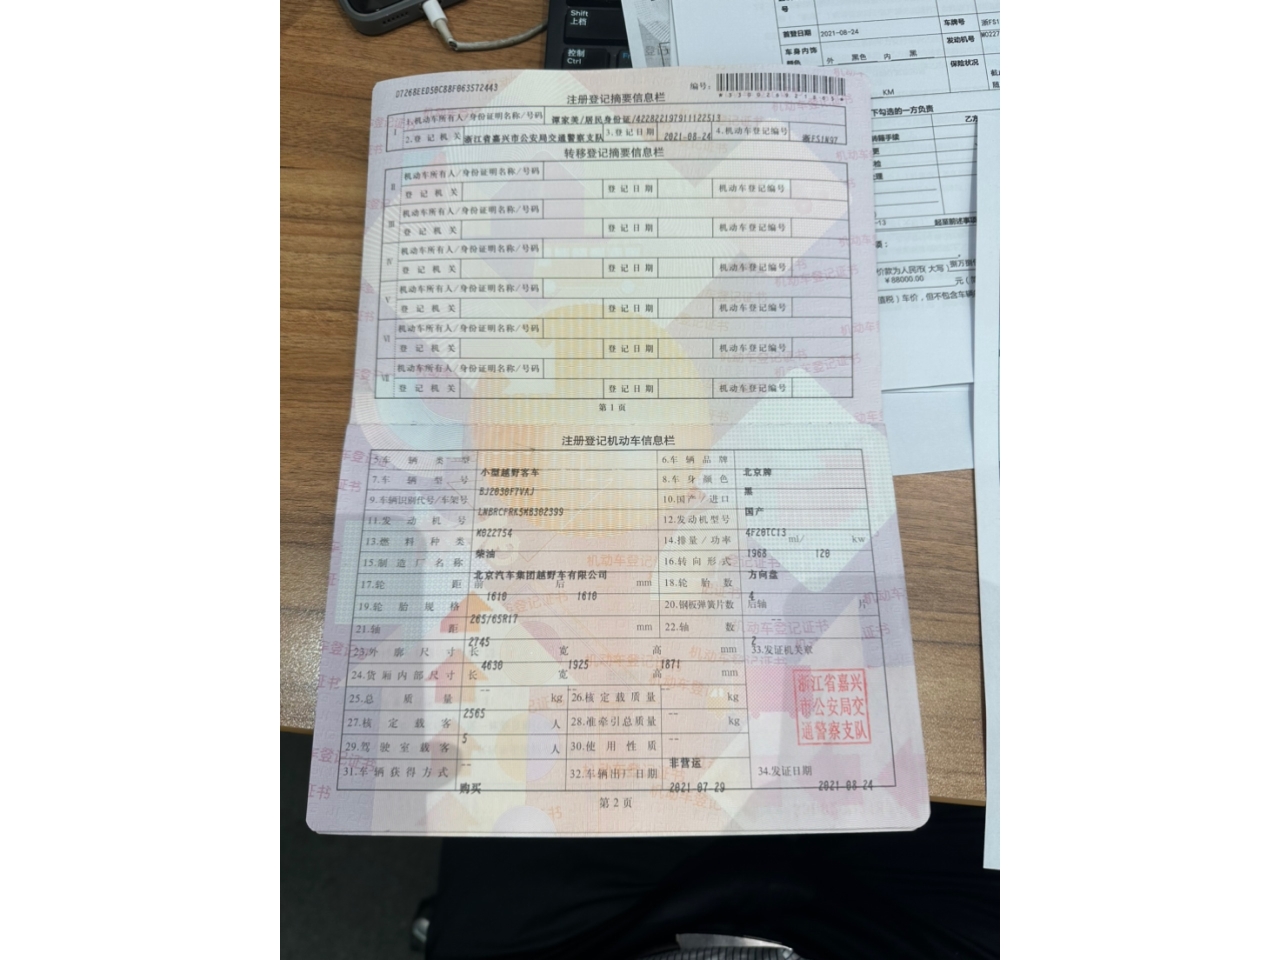 D7268EED5BCBBF063572443
编号:
注册登记摘要信息栏
I 1.机动车所有人/身份证明名称/号码 谭家美/居民身份证/422822197911122513
2.登记机关 浙江省嘉兴市公安局交通警察支队 3.登记日期 2021-08-24 4.机动车登记编号
转移登记摘要信息栏
II 机动车所有人/身份证明名称/号码
登记机关 登记日期 机动车登记编号
III 机动车所有人/身份证明名称/号码
登记机关 登记日期 机动车登记编号
IV 机动车所有人/身份证明名称/号码
登记机关 登记日期 机动车登记编号
V 机动车所有人/身份证明名称/号码
登记机关 登记日期 机动车登记编号
VI 机动车所有人/身份证明名称/号码
登记机关 登记日期 机动车登记编号
VII 机动车所有人/身份证明名称/号码
登记机关 登记日期 机动车登记编号
第1页
注册登记机动车信息栏
5.车辆类型 小型越野客车 6.车辆品牌 北京牌
7.车辆型号 BJ2030F7VAJ 8.车身颜色 黑
9.车辆识别代号/车架号 LNBRCFRK5MB302399 10.国产/进口 国产
11.发动机号 M022754 12.发动机型号 4F20TC13
13.燃料种类 柴油 14.排量/功率 1968 ml/ 120 kw
15.制造厂名称 北京汽车集团越野车有限公司 16.转向形式 方向盘
17.轮距 前 1610 后 1610 mm 18.轮胎数 4
19.轮胎规格 265/65R17 20.钢板弹簧片数 后轴 -- 片
21.轴距 2745 mm 22.轴数 2
23.外廓尺寸 长 4630 宽 1925 高 1871 mm 33.发证机关章
24.货厢内部尺寸 长 -- 宽 -- 高 mm
浙江省嘉兴
市公安局交
通警察支队
25.总质量 2565 kg 26.核定载质量 -- kg
27.核定载客 5 人 28.准牵引总质量 -- kg
29.驾驶室载客 -- 人 30.使用性质 非营运
31.车辆获得方式 购买 32.车辆出厂日期 2021-07-29 34.发证日期 2021-08-24
第2页
Shift
上档
控制
Ctrl
号
车牌号
首登日期 2021-08-24
发动机号
车身内饰
外 黑色 内 黑
保险状况
KM
下勾选的一方负责
价款为人民币(大写)
¥88000.00 元
车价,但不包含车辆